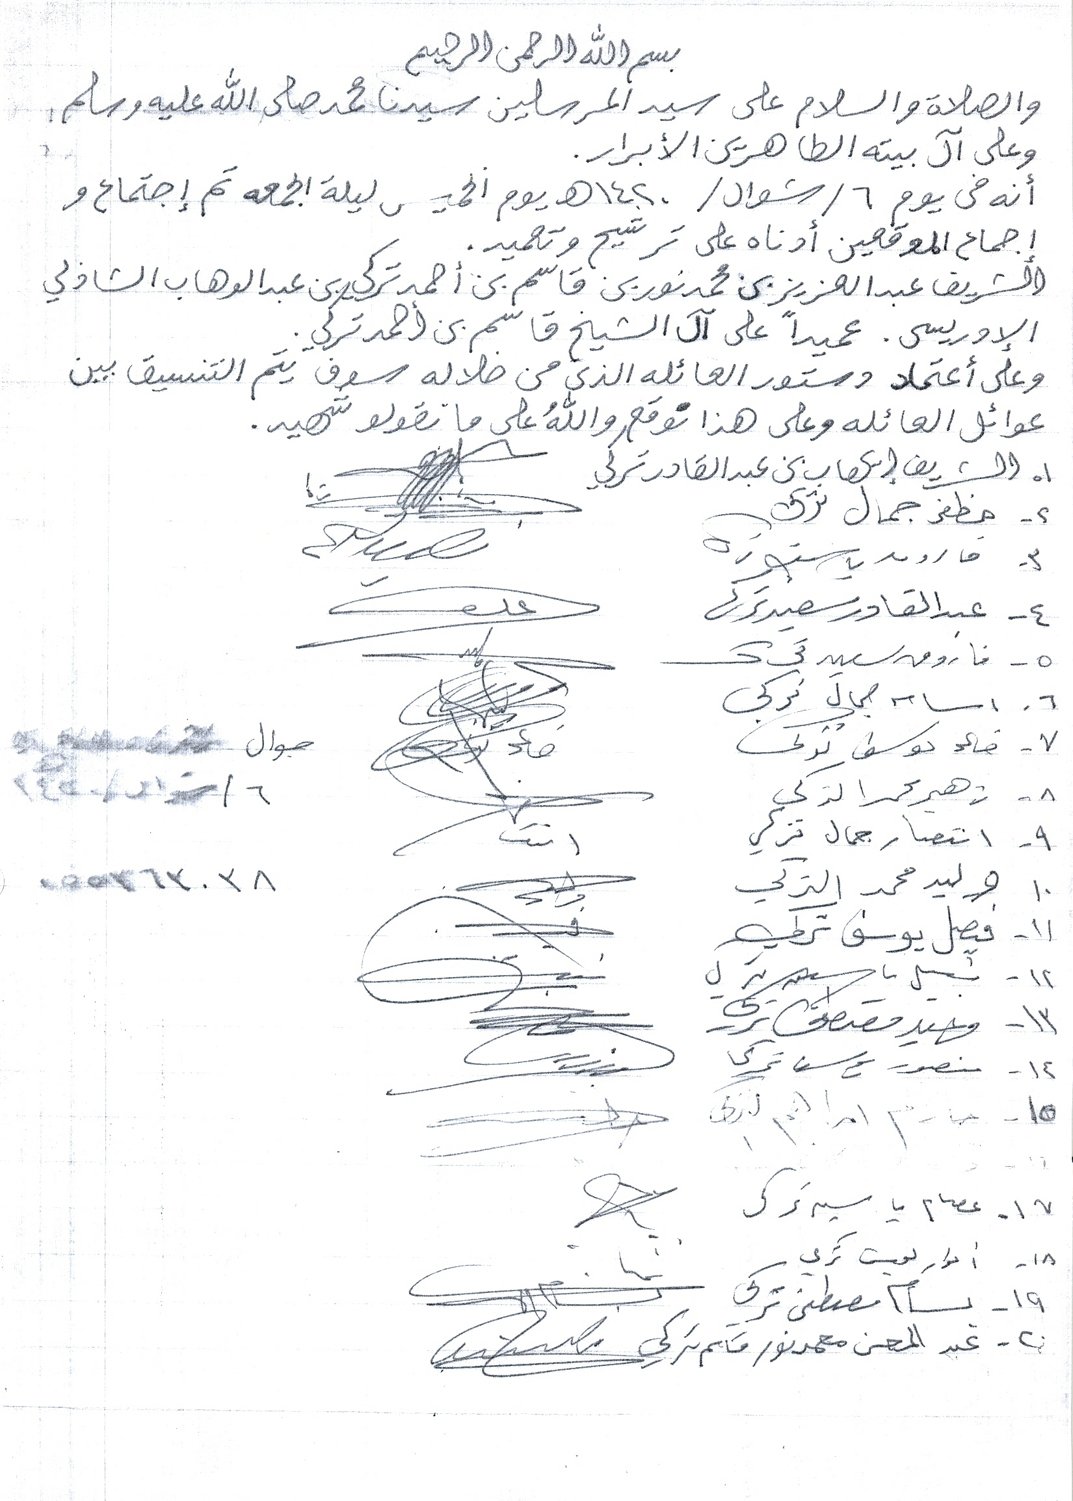 بسم الله الرحمن الرحيم
والصلاة والسلام على سيد المرسلين سيدنا محمد صلى الله عليه وسلم
وعلى آل بيته الطاهرين الأبرار.
أنه في يوم ٦/شوال/١٤٢٠هـ يوم الخميس ليلة الجمعه تم إجتماع و
إجماع الموقعين أدناه على ترشيح وتعميد.
الشريف عبدالعزيز بن محمد نور بن قاسم بن أحمد تركي بن عبدالوهاب الشاذلي
الإدريسي. عميداً على آل الشيخ قاسم بن أحمد تركي.
وعلى أعتماد دستور العائله الذي من خلاله سوف يتم التنسيق بين
عوائل العائله وعلى هذا نوقع والله على ما نقولو شهيد.
١- الشريف إيهاب بن عبدالقادر تركي
٢- مظفر جمال تركي
٣-
٤- عبدالقادر سعيد تركي
٥- فاروق سعيد تركي
٦- اسامه جمال تركي
٧- خالد يوسف تركي خالد جوال
٨- زهير محمد التركي ٦/
٩- انتصار جمال تركي
١٠- وليد محمد التركي ٠٣٨
١١- فيصل يوسف تركي
١٢- نبيل تركي
١٣- وحيد مصطفى تركي
١٤- منصور تركي
١٥- حازم ابراهيم تركي
١٧- عصام ياسين تركي
١٨- انور تركي
١٩- بسام مصطفى تركي
٢٠- عبد المحسن محمد نور قاسم تركي